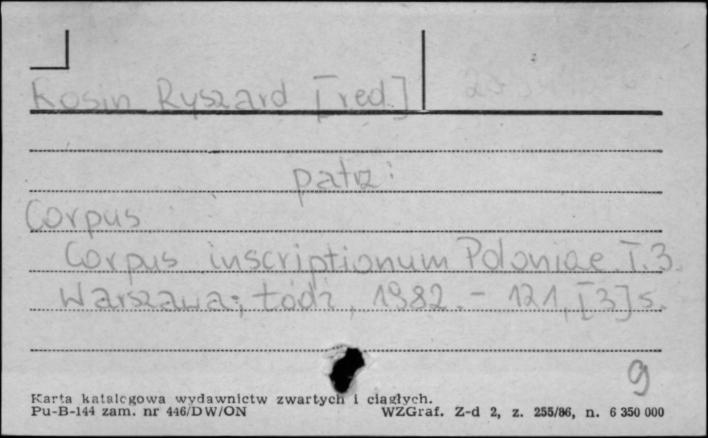 Kosin Ryszard [red]
patrz:
Corpus
Corpus inscriptionum Poloniae. T. 3.
Warszawa; Łódź, 1982. - 121, [3] s.
9
Karta katalogowa wydawnictw zwartych i ciągłych.
Pu-B-144 zam. nr 446/DW/ON WZGraf. Z-d 2, z. 255/86, n. 6 350 000